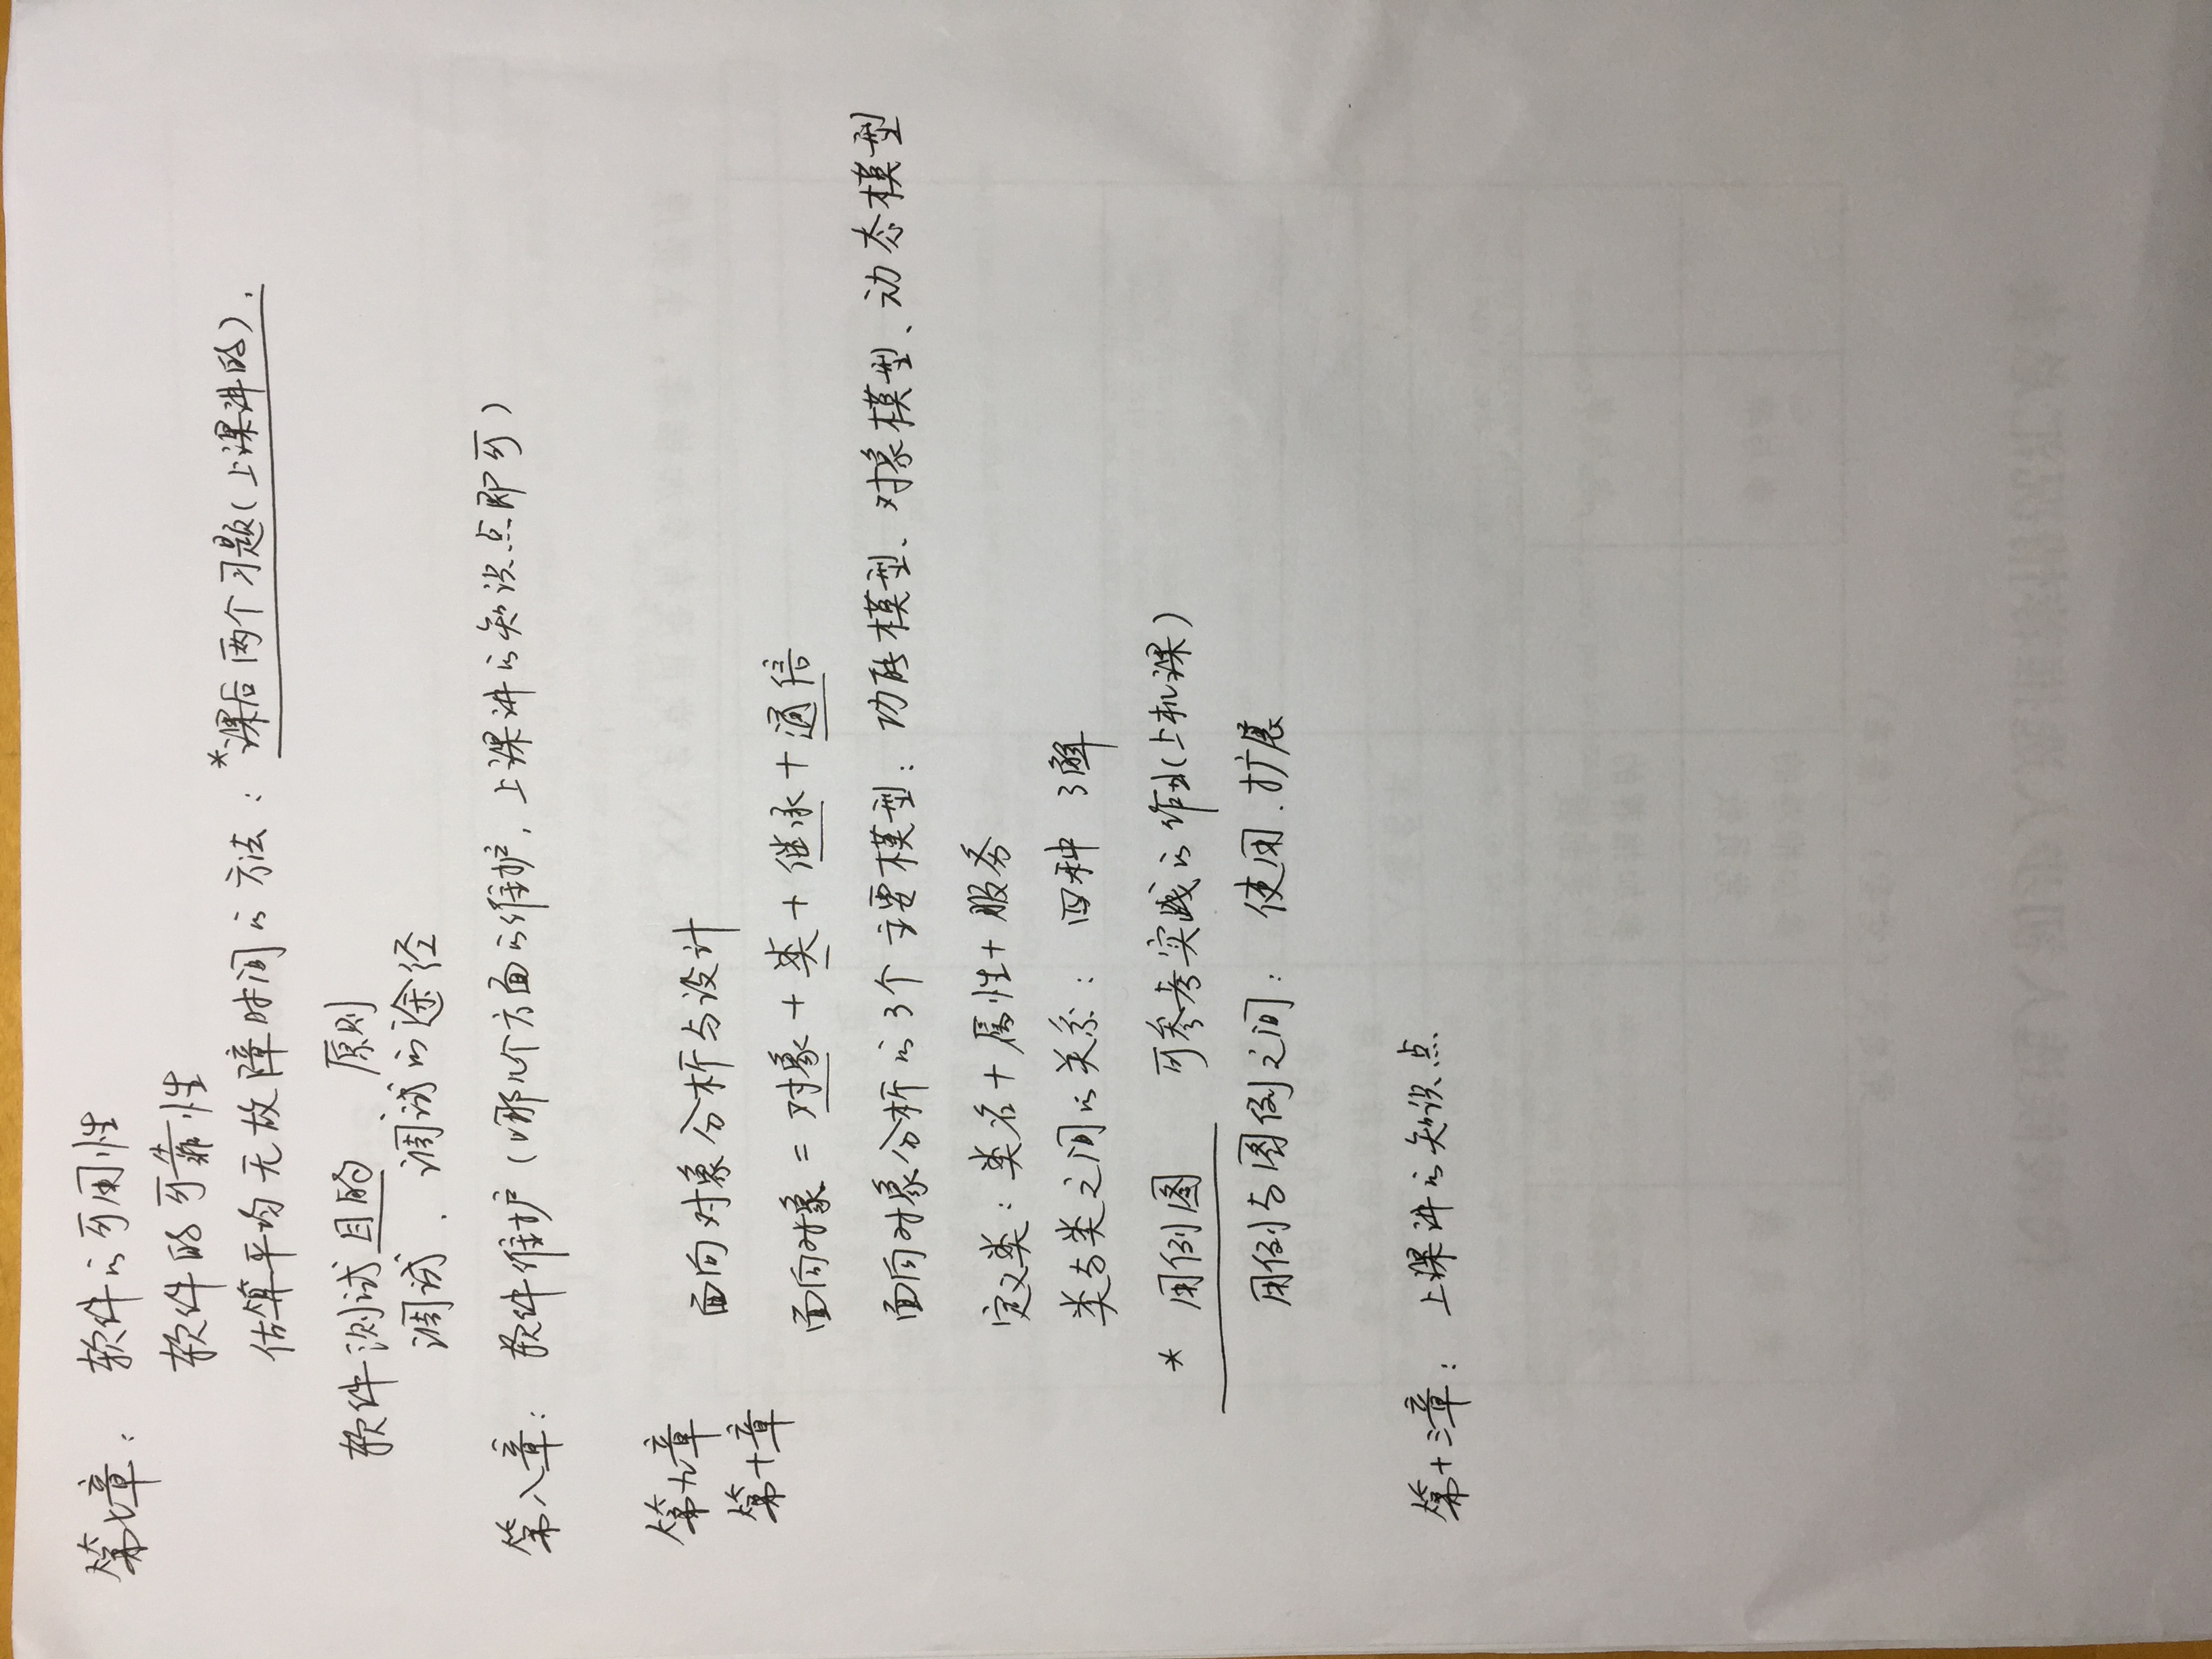 第七章： 软件的可用性
软件的可靠性
估算平均无故障时间的方法：*课后两个习题(上课讲的).
软件测试目的、原则
调试、调试的途径
第八章： 软件维护(哪几个方面的维护，上课讲的知识点即可)
第九章
第十章
面向对象分析与设计
面向对象 = 对象 + 类 + 继承 + 通信
面向对象分析的3个主要模型：功能模型、对象模型、动态模型
定义类：类名 + 属性 + 服务
类与类之间的关系： 四种 了解
* 用例图 可参考实践的作业(上机课)
用例与图例之间： 使用、扩展
第十三章： 上课讲的知识点